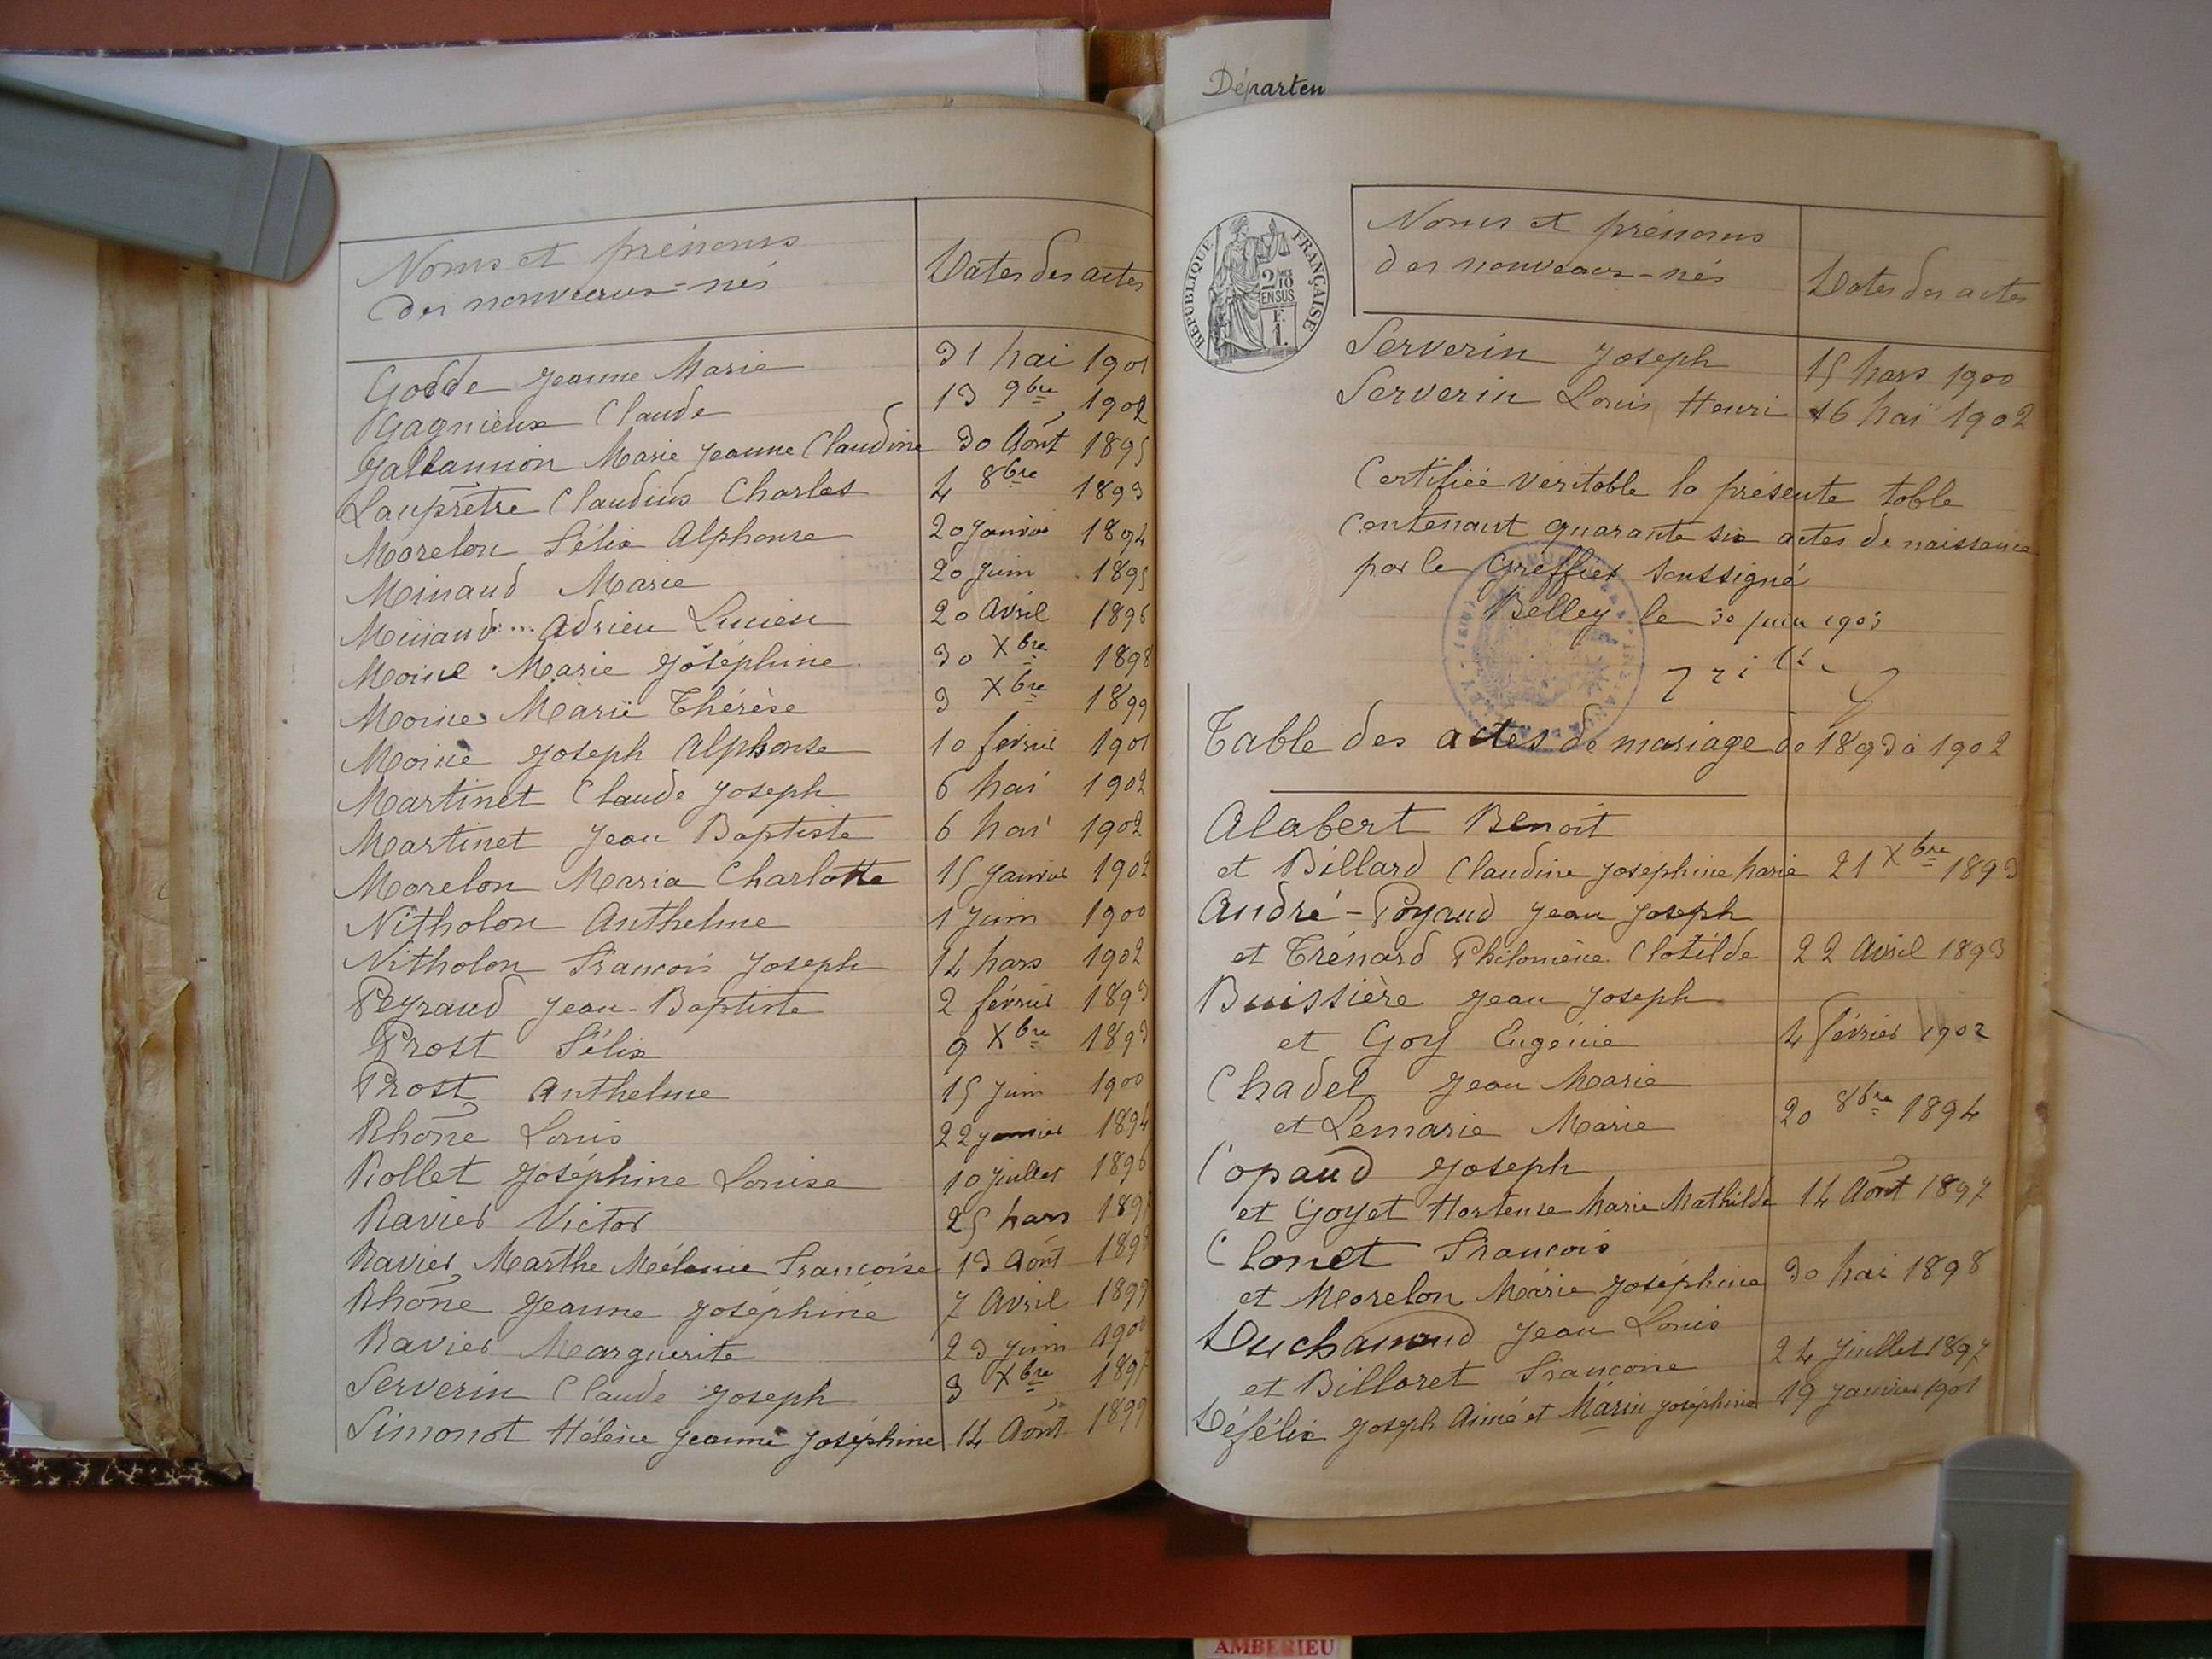 Départem
Noms et prénoms
des nouveaux-nés
Dates des actes
Godde Jeanne Marie 31 Mai 1901
Gagnieux Claude 13 9bre 1902
Gallannion Marie Jeanne Claudine 30 Août 1895
Lauprêtre Claudius Charles 4 8bre 1893
Morelon Félix Alphonse 20 Janvier 1894
Minaud Marie 20 Juin 1895
Minaud Adrien Lucien 20 Avril 1896
Moine Marie Joséphine 30 Xbre 1898
Moine Marie Thérèse 3 Xbre 1899
Moine Joseph Alphonse 10 février 1901
Martinet Claude Joseph 6 Mai 1902
Martinet Jean Baptiste 6 Mai 1902
Morelon Maria Charlotte 15 Janvier 1902
Nitholon Anthelme 1 Juin 1900
Nitholon François Joseph 14 Mars 1902
Peyraud Jean-Baptiste 2 février 1893
Prost Félix 9 Xbre 1893
Prost Anthelme 15 Juin 1900
Rhône Louis 22 Janvier 1894
Rollet Joséphine Louise 10 Juillet 1896
Ravier Victor 25 Mars 1897
Ravier Marthe Mélanie Françoise 13 Août 1898
Rhône Jeanne Joséphine 7 Avril 1899
Ravier Marguerite 23 Juin 1900
Serverin Claude Joseph 3 Xbre 1897
Simonot Hélène Jeanne Joséphine 14 Août 1899
RÉPUBLIQUE FRANÇAISE
2/10 EN SUS
F. 1.
Noms et prénoms
des nouveaux-nés
Dates des actes
Serverin Joseph 15 Mars 1900
Serverin Louis Henri 16 Mai 1902
Certifiée véritable la présente table
contenant quarante six actes de naissance
par le Greffier soussigné
Belley le 30 juin 1903
Table des actes de mariage de 1893 à 1902
Alabert Benoit
et Billard Claudine Joséphine Marie 21 Xbre 1893
André-Poyaud Jean Joseph
et Trénard Philomène Clotilde 22 Avril 1893
Buissière Jean Joseph
et Goy Eugénie 4 février 1902
Chadel Jean Marie
et Lemarie Marie 20 8bre 1894
Copaud Joseph
et Goyet Hortense Marie Mathilde 14 Août 1897
Clonet François
et Morelon Marie Joséphine 30 Mai 1898
Duchamoud Jean Louis
et Billoret Françoise 24 Juillet 1897
Défélix Joseph Aimé et Marin Joséphine 19 Janvier 1901
AMBERIEU